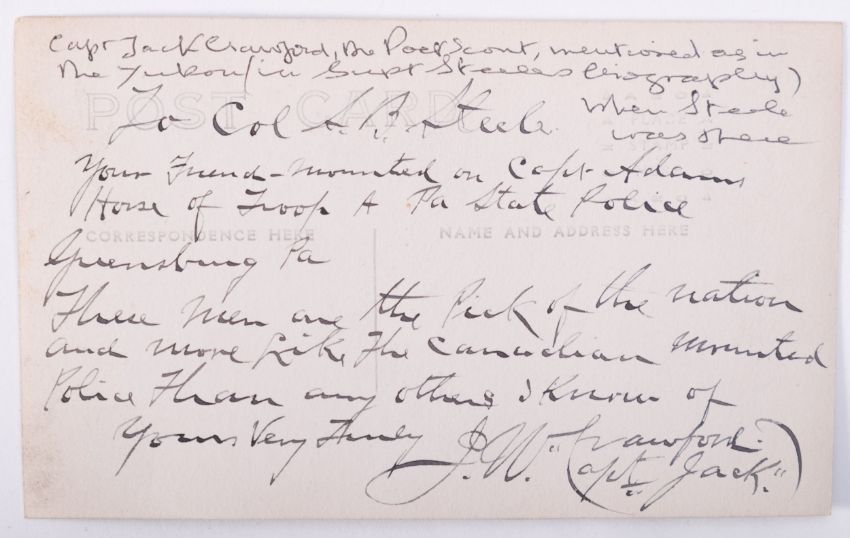 Capt Jack Crawford, the Poet Scout, mentioned as in
the Yukon (in Supt Steeles biography)
when Steele
was there
POST CARD
PLACE
STAMP
To Col S. B. Steele
Your Friend - mounted on Capt Adams
Horse of Troop A Pa State Police
CORRESPONDENCE HERE
NAME AND ADDRESS HERE
Greensburg Pa
These men are the Pick of the nation
and more Like The Canadian mounted
Police Than any others I Know of
Yours Very Truly
J. W. Crawford.
(Capt "Jack.")